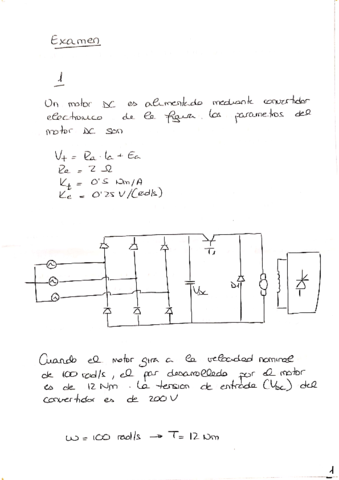 Examen
1
Un motor DC es alimentado mediante convertidor
electronico de la figura. Los parametros del
motor DC son
Vt = Ra · Ia + Ea
Ra = 2 Ω
Kt = 0'5 Nm/A
Ke = 0'25 V/(rad/s)
T1
VDC
D1
Cuando el motor gira a la velocidad nominal
de 100 rad/s, el par desarrollado por el motor
es de 12 Nm. La tension de entrada (VDC) del
convertidor es de 200 V
ω = 100 rad/s → T = 12 Nm
1